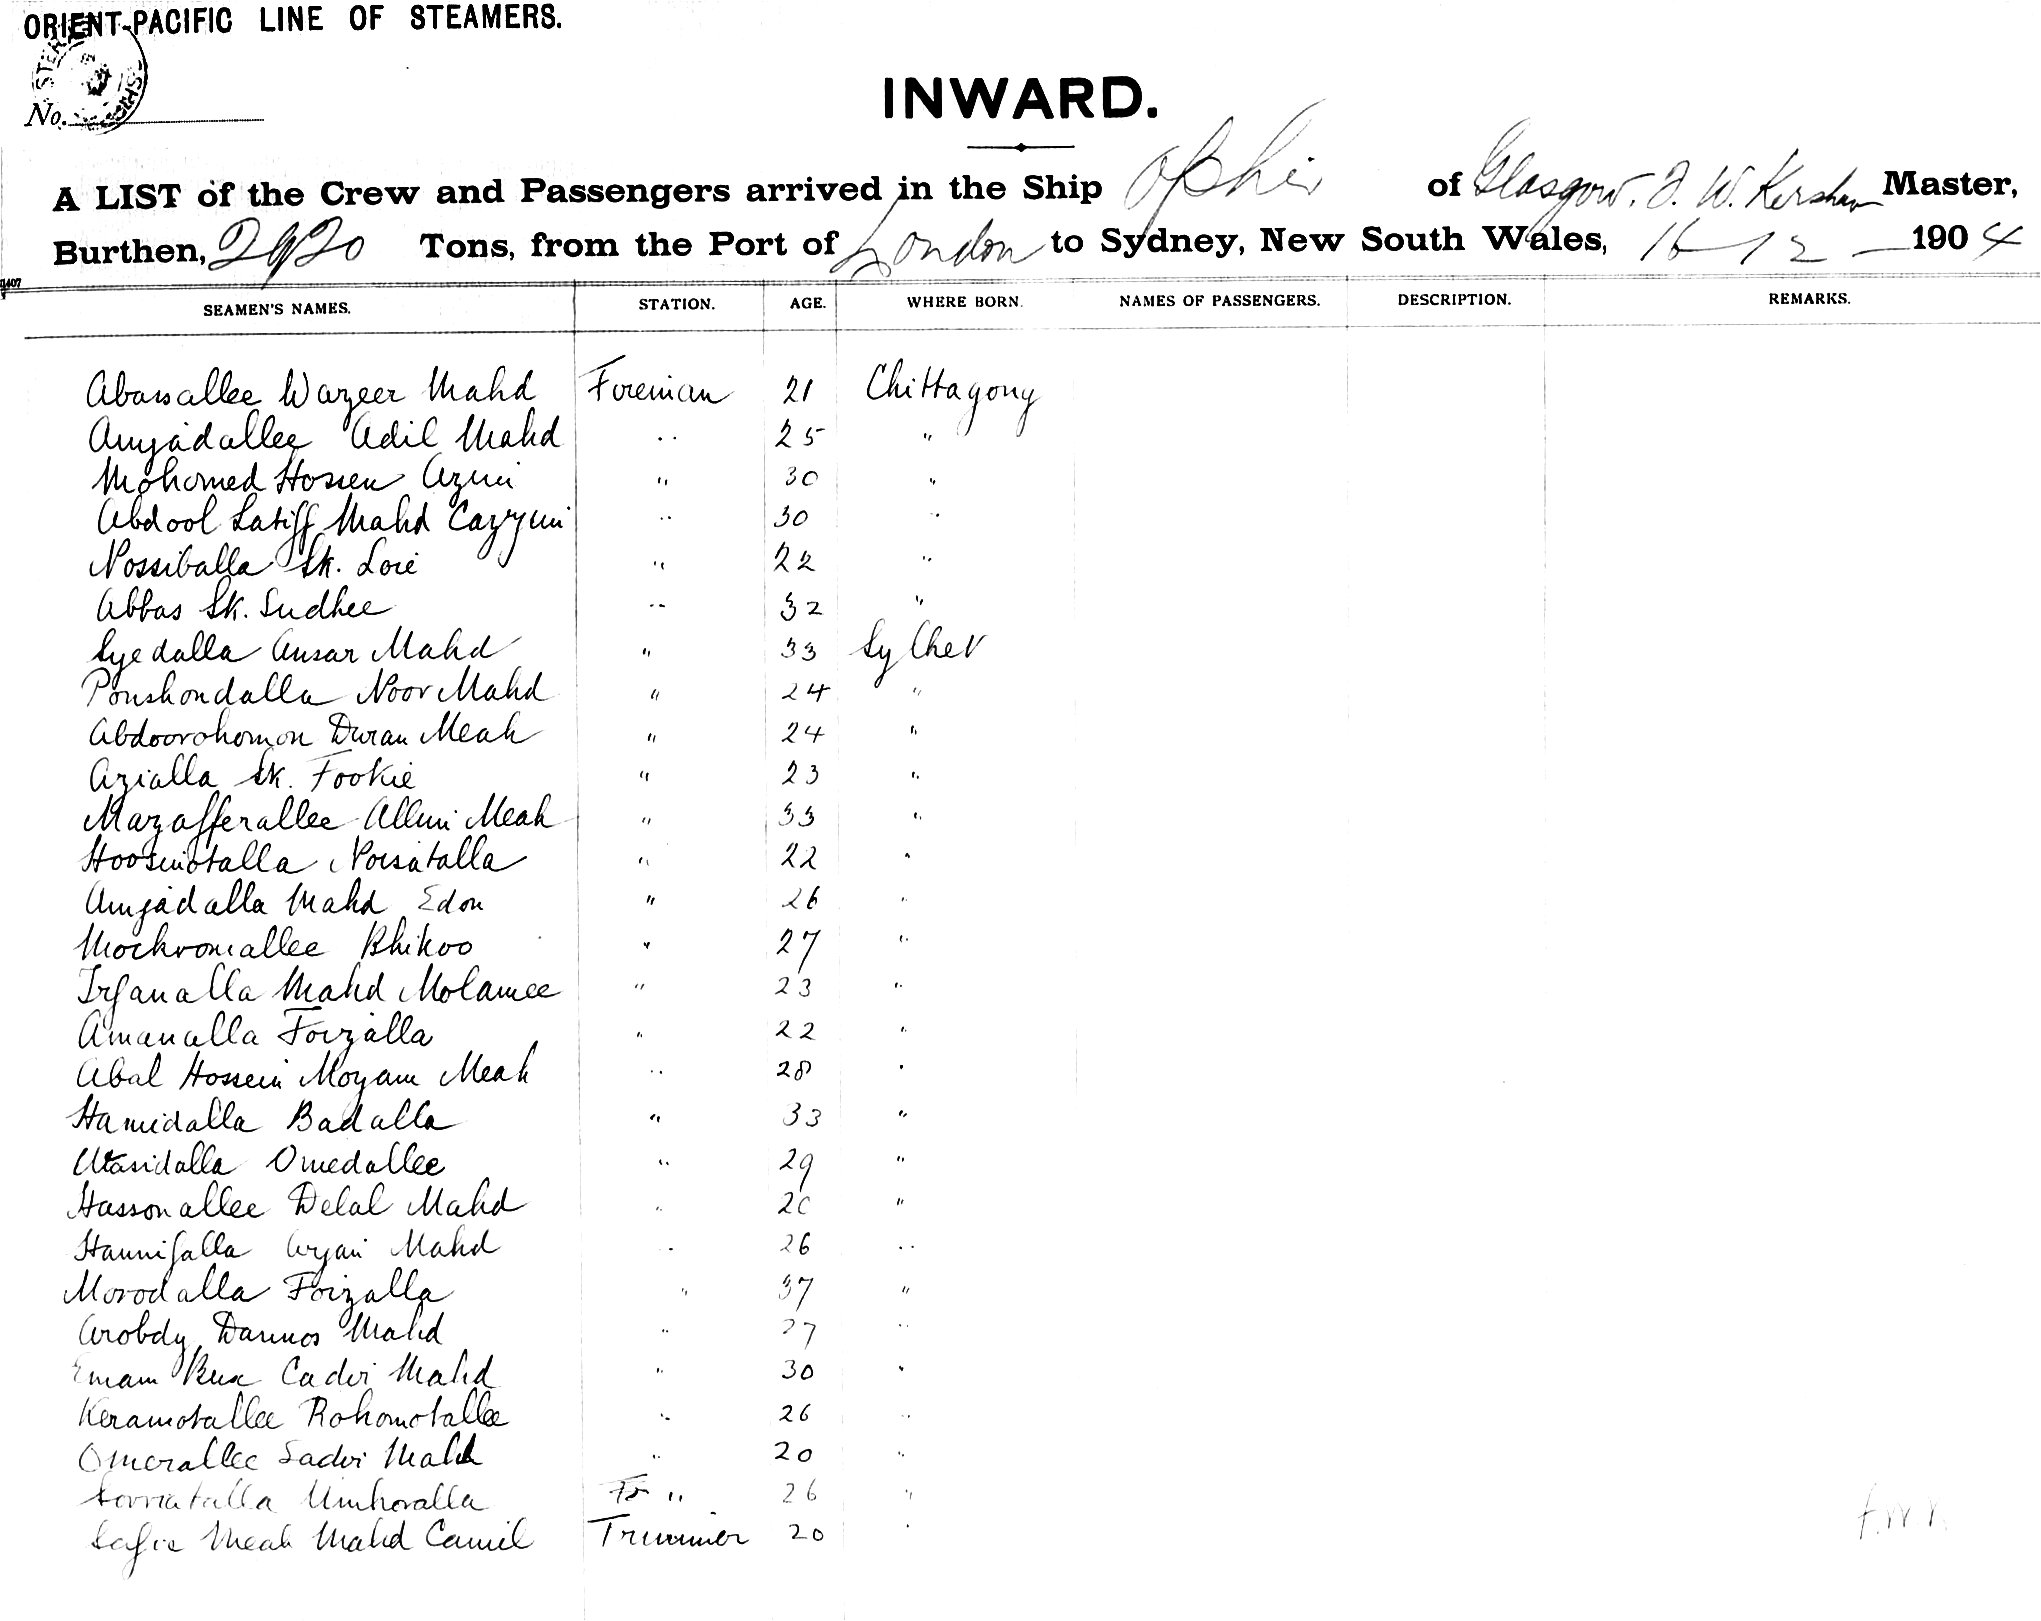 ORIENT-PACIFIC LINE OF STEAMERS.
No.
INWARD.
A LIST of the Crew and Passengers arrived in the Ship Ophir of Glasgow. J. W. Kershaw Master,
Burthen, 2920 Tons, from the Port of London to Sydney, New South Wales, 16 12 1904
SEAMEN'S NAMES. STATION. AGE. WHERE BORN. NAMES OF PASSENGERS. DESCRIPTION. REMARKS.
Abassallee Wazeer Mahd Fireman 21 Chittagong
Amjadallee Adil Mahd " 25 "
Mohomed Hossen Azim " 30 "
Abdool Latiff Mahd Cazzim " 30 "
Nossiballa Sk. Lorie " 22 "
Abbas Sk. Sudhee " 32 "
Syedalla Ansar Mahd " 33 Sylhet
Poushondalla Noor Mahd " 24 "
Abdoorohomon Duran Meah " 24 "
Azialla Sk. Fookie " 23 "
Mazafferallee Allim Meah " 33 "
Hoosmotalla Noisatalla " 22 "
Amjadalla Mahd Edon " 26 "
Mockromallee Bhikoo " 27 "
Irfanalla Mahd Molamee " 23 "
Amanalla Foizalla " 22 "
Abal Hossein Moyam Meah " 28 "
Hamidalla Badalla " 33 "
Omedallee " 29 "
Hassonallee Delal Mahd " 20 "
Hannifalla Arjan Mahd " 26 "
Morodalla Foizalla " 37 "
Arobdy Dannos Mahd " 27 "
Emam Bux Cadir Mahd " 30 "
Keramotallee Rohomotallee " 26 "
Omerallee Sadir Mahd " 20 "
Umhoralla Fr " 26 "
Safie Meah Mahd Camil Trimmer 20 "